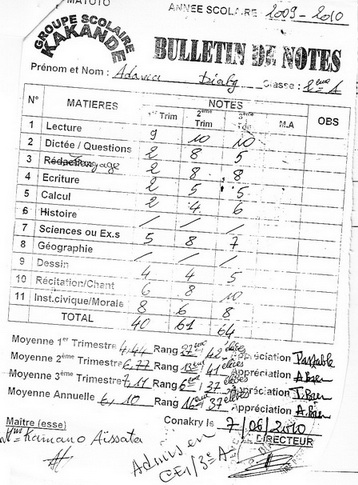 MATOTO ANNEE SCOLAIRE 2009-2010
GROUPE SCOLAIRE
KAKANDE
BULLETIN DE NOTES
Prénom et Nom : Adama Diaby Classe : 2ème A
N° MATIERES NOTES OBS
1er Trim 2ème Trim 3ème Trim M.A
1 Lecture 9 10 10
2 Dictée / Questions 2 8 5
3 Rédaction 2 8 8
4 Ecriture 2 5 5
5 Calcul 2 4 6
6 Histoire / / /
7 Sciences ou Ex.s 5 8 7
8 Géographie / / /
9 Dessin 4 4 5
10 Récitation/Chant 6 8 10
11 Inst.civique/Morale 8 6 8
TOTAL 40 61 64
Moyenne 1er Trimestre 4,44 Rang 42 élèves Appréciation Passable
Moyenne 2ème Trimestre 6,77 Rang 41 élèves Appréciation A.Bien
Moyenne 3ème Trimestre Rang 37 élèves Appréciation
Moyenne Annuelle 6,10 Rang 16ème 37 élèves Appréciation A.Bien
Conakry le 7/06/2010
Maître (esse) DIRECTEUR
Mme Kamano Aïssata
Admis en
CE1/3è A